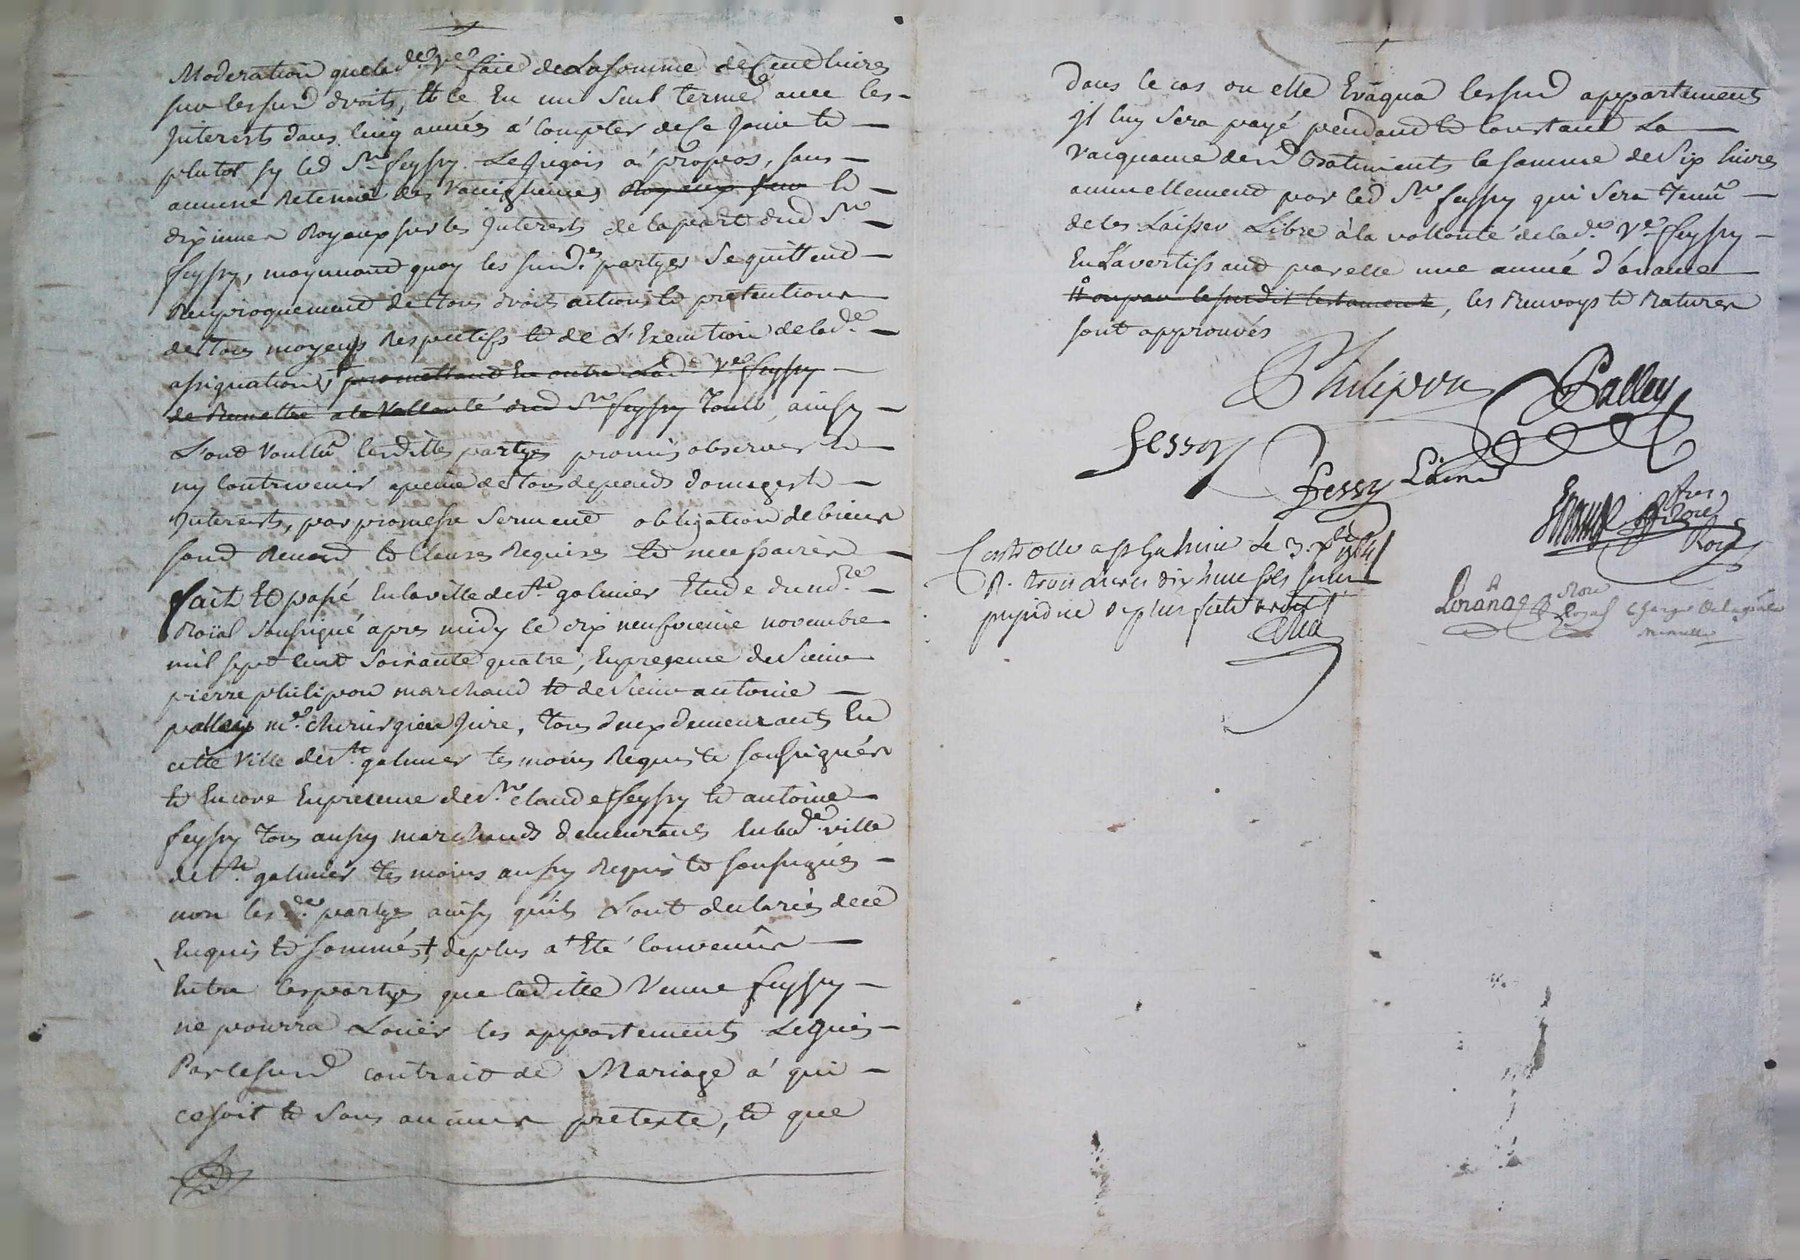 Moderation que lad.e v.e fait de la somme de Cent livres
sur les sud droits, et ce En un seul terme avec les
Interests dans cinq années a' compter de Ce Jour et
plutot sy led S.r feyssy Le Jugois a' propos, sans
aucune Retenue des Vaingtiemes et
dixiemes Royaux sur les Interests de la part dud S.r
feyssy, moyennant quoy les sud.es partyes se quittent
Reciproquement de tous droits actions et pretentions
de tous moyens Respectifs et de L'Execution de lad.e
assignation promettant En outre Lad.e v.e feyssy
de Remettre a la Vollonté dud S.r feyssy Toutte, ainsy
L'ont Voullu lesdittes partyes promis observer et
ny Contrevenir a peine de tous depends domages et
Interests, par promesse serment obligation de biens
sous Renond et Clauses Requises et necessaires
fait et passé En la ville de S.t galmier Etude du not.re
Roïal soussigné apres midy le dix neufvieme novembre
mil sept cent soixante quatre, En presence de Sieur
pierre philipon marchand et de Sieur antoine
palley m.e chirurgien Juré, tous deux demeurants En
cette Ville de S.t galmier temoins Requis et soussignés
et Encore En presence de S.r claude feyssy et antoine
feyssy tous aussy marchands demeurants En lad.e ville
de S.t galmier temoins aussy Requis et soussignés
non les d.es partyes ainsy qu'ils L'ont declarés de ce
Enquis et sommés, de plus a' Eté Convenu
Entre les partyes que laditte Veuve feyssy
ne pourra Louer les appartements Legués
Par le sud contrait de Mariage a' qui
ce soit et sous aucun pretexte, et que
dans le cas ou elle Evaqua les sud appartements
Il luy sera payé pendant et Constant La
vacquance desd Batiments la somme de six livres
annuellement par led S.r feyssy qui sera tenu
de les Laisser Libre à la vollonté de lad.e V.e feyssy
En L'avertissant par elle une année d'avance
ou par le susdit testament, les Renvoys et Ratures
sont approuvés
Philipon
Palley
Fessy
Fessy Lainé
Controllé a S.t Galmier le 3 x.bre 1764
R. trois livres dix huit sols